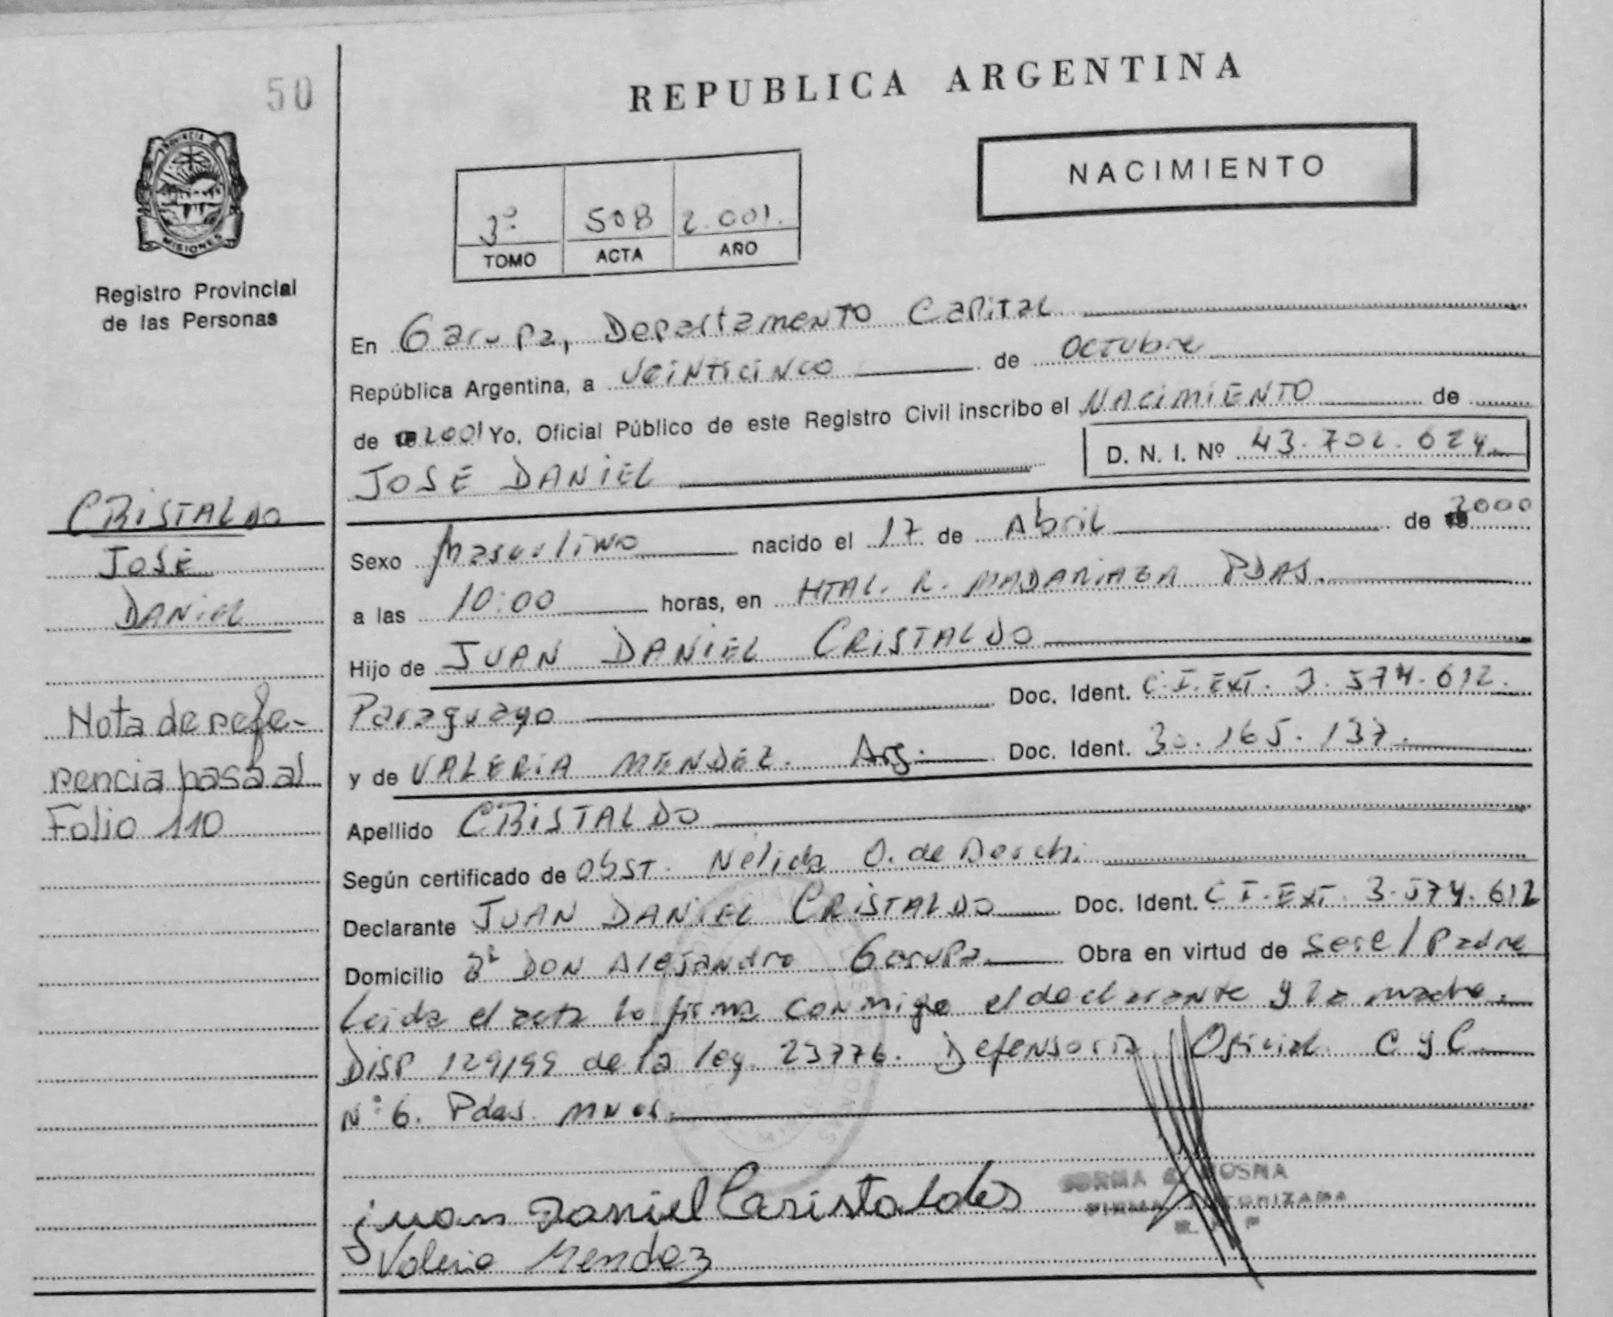 50
REPUBLICA ARGENTINA
NACIMIENTO
3º 508 2.001.
TOMO ACTA AÑO
PROVINCIA
MISIONES
Registro Provincial
de las Personas
En Garupa, Departamento Capital
República Argentina, a Veinticinco de Octubre
de 2001 Yo, Oficial Público de este Registro Civil inscribo el NACIMIENTO de
D. N. I. Nº 43.702.624
JOSE DANIEL
CRISTALDO
JOSE
DANIEL
Sexo Masculino nacido el 17 de Abril de 2000
a las 10:00 horas, en HTAL. R. MADARIAGA PDAS.
Hijo de JUAN DANIEL CRISTALDO
Paraguayo Doc. Ident. C.I. EXT. 3.574.612.
y de VALERIA MENDEZ. Arg. Doc. Ident. 30.165.137.
Nota de refe-
rencia pasa al
Folio 110
Apellido CRISTALDO
Según certificado de OBST. Nélida O. de
Declarante JUAN DANIEL CRISTALDO Doc. Ident. C I. EXT. 3.574.612
Domicilio Bº DON Alejandro Garupa Obra en virtud de ser el/Padre
Leida el acta la firma conmigo el declarante y la madre.
DISP 129/99 de la ley. 23776. Defensoria Oficial C y C.
Nº 6. Pdas. Mnes.
juan Daniel Caristaldes
Valeria Mendez
FIRMA